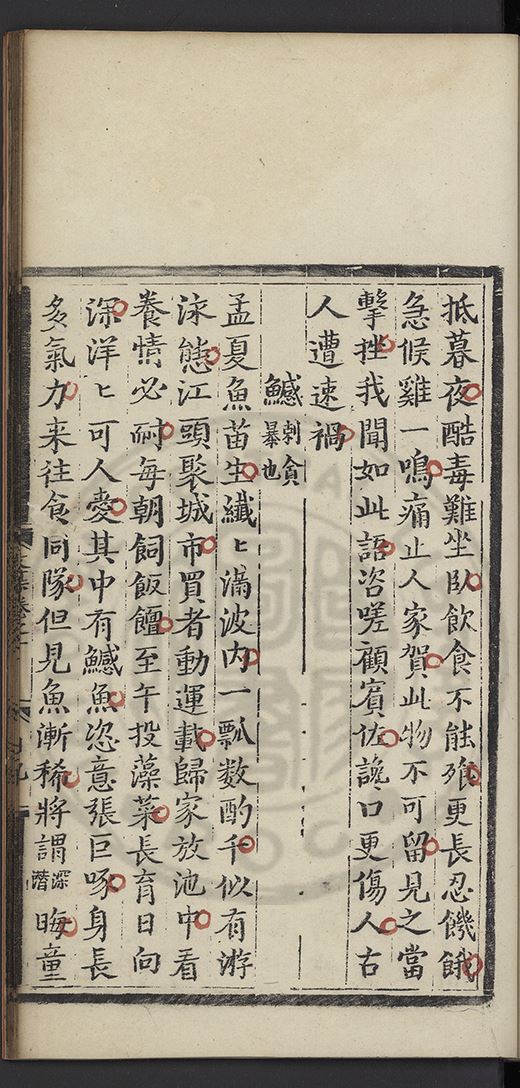 抵暮夜酷毒難坐臥飲食不能飱更長忍饑餓
急候雞一鳴痛止人家賀此物不可留見之當
擊挫我聞如此語咨嗟顧賓佐讒口更傷人古
人遭速禍
鱤刺貪暴也
孟夏魚苗生纖〻滿波內一瓢数酌千似有游
泳態江頭聚城市買者動運載歸家放池中看
養情必耐每朝飼飯饘至午投藻菜長育日向
深洋〻可人愛其中有鱤魚恣意張巨啄身長
多氣力来往食同隊但見魚漸稀將謂深潛晦童